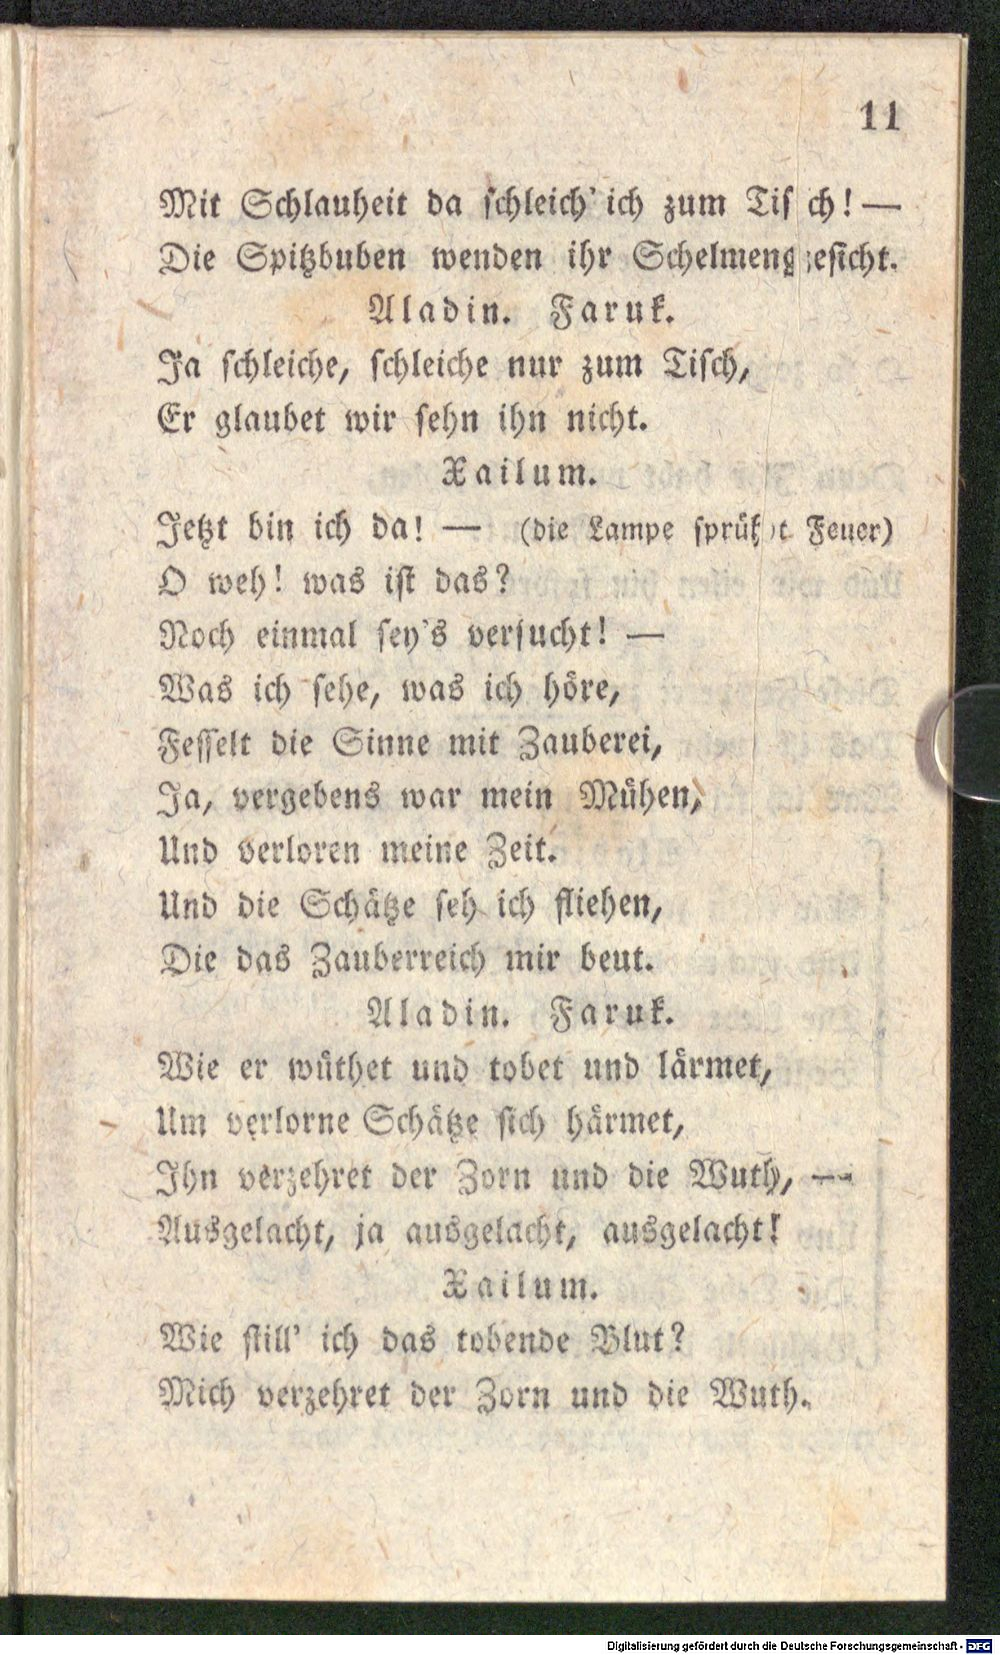 11
Mit Schlauheit da schleich' ich zum Tisch! —
Die Spitzbuben wenden ihr Schelmengesicht.
Aladin. Faruk.
Ja schleiche, schleiche nur zum Tisch,
Er glaubet wir sehn ihn nicht.
Xailum.
Jetzt bin ich da! — (die Lampe sprüht Feuer)
O weh! was ist das?
Noch einmal sey's versucht! —
Was ich sehe, was ich höre,
Fesselt die Sinne mit Zauberei,
Ja, vergebens war mein Mühen,
Und verloren meine Zeit.
Und die Schätze seh ich fliehen,
Die das Zauberreich mir beut.
Aladin. Faruk.
Wie er wüthet und tobet und lärmet,
Um verlorne Schätze sich härmet,
Ihn verzehret der Zorn und die Wuth, —
Ausgelacht, ja ausgelacht, ausgelacht!
Xailum.
Wie still' ich das tobende Blut?
Mich verzehret der Zorn und die Wuth.
Digitalisierung gefördert durch die Deutsche Forschungsgemeinschaft - DFG